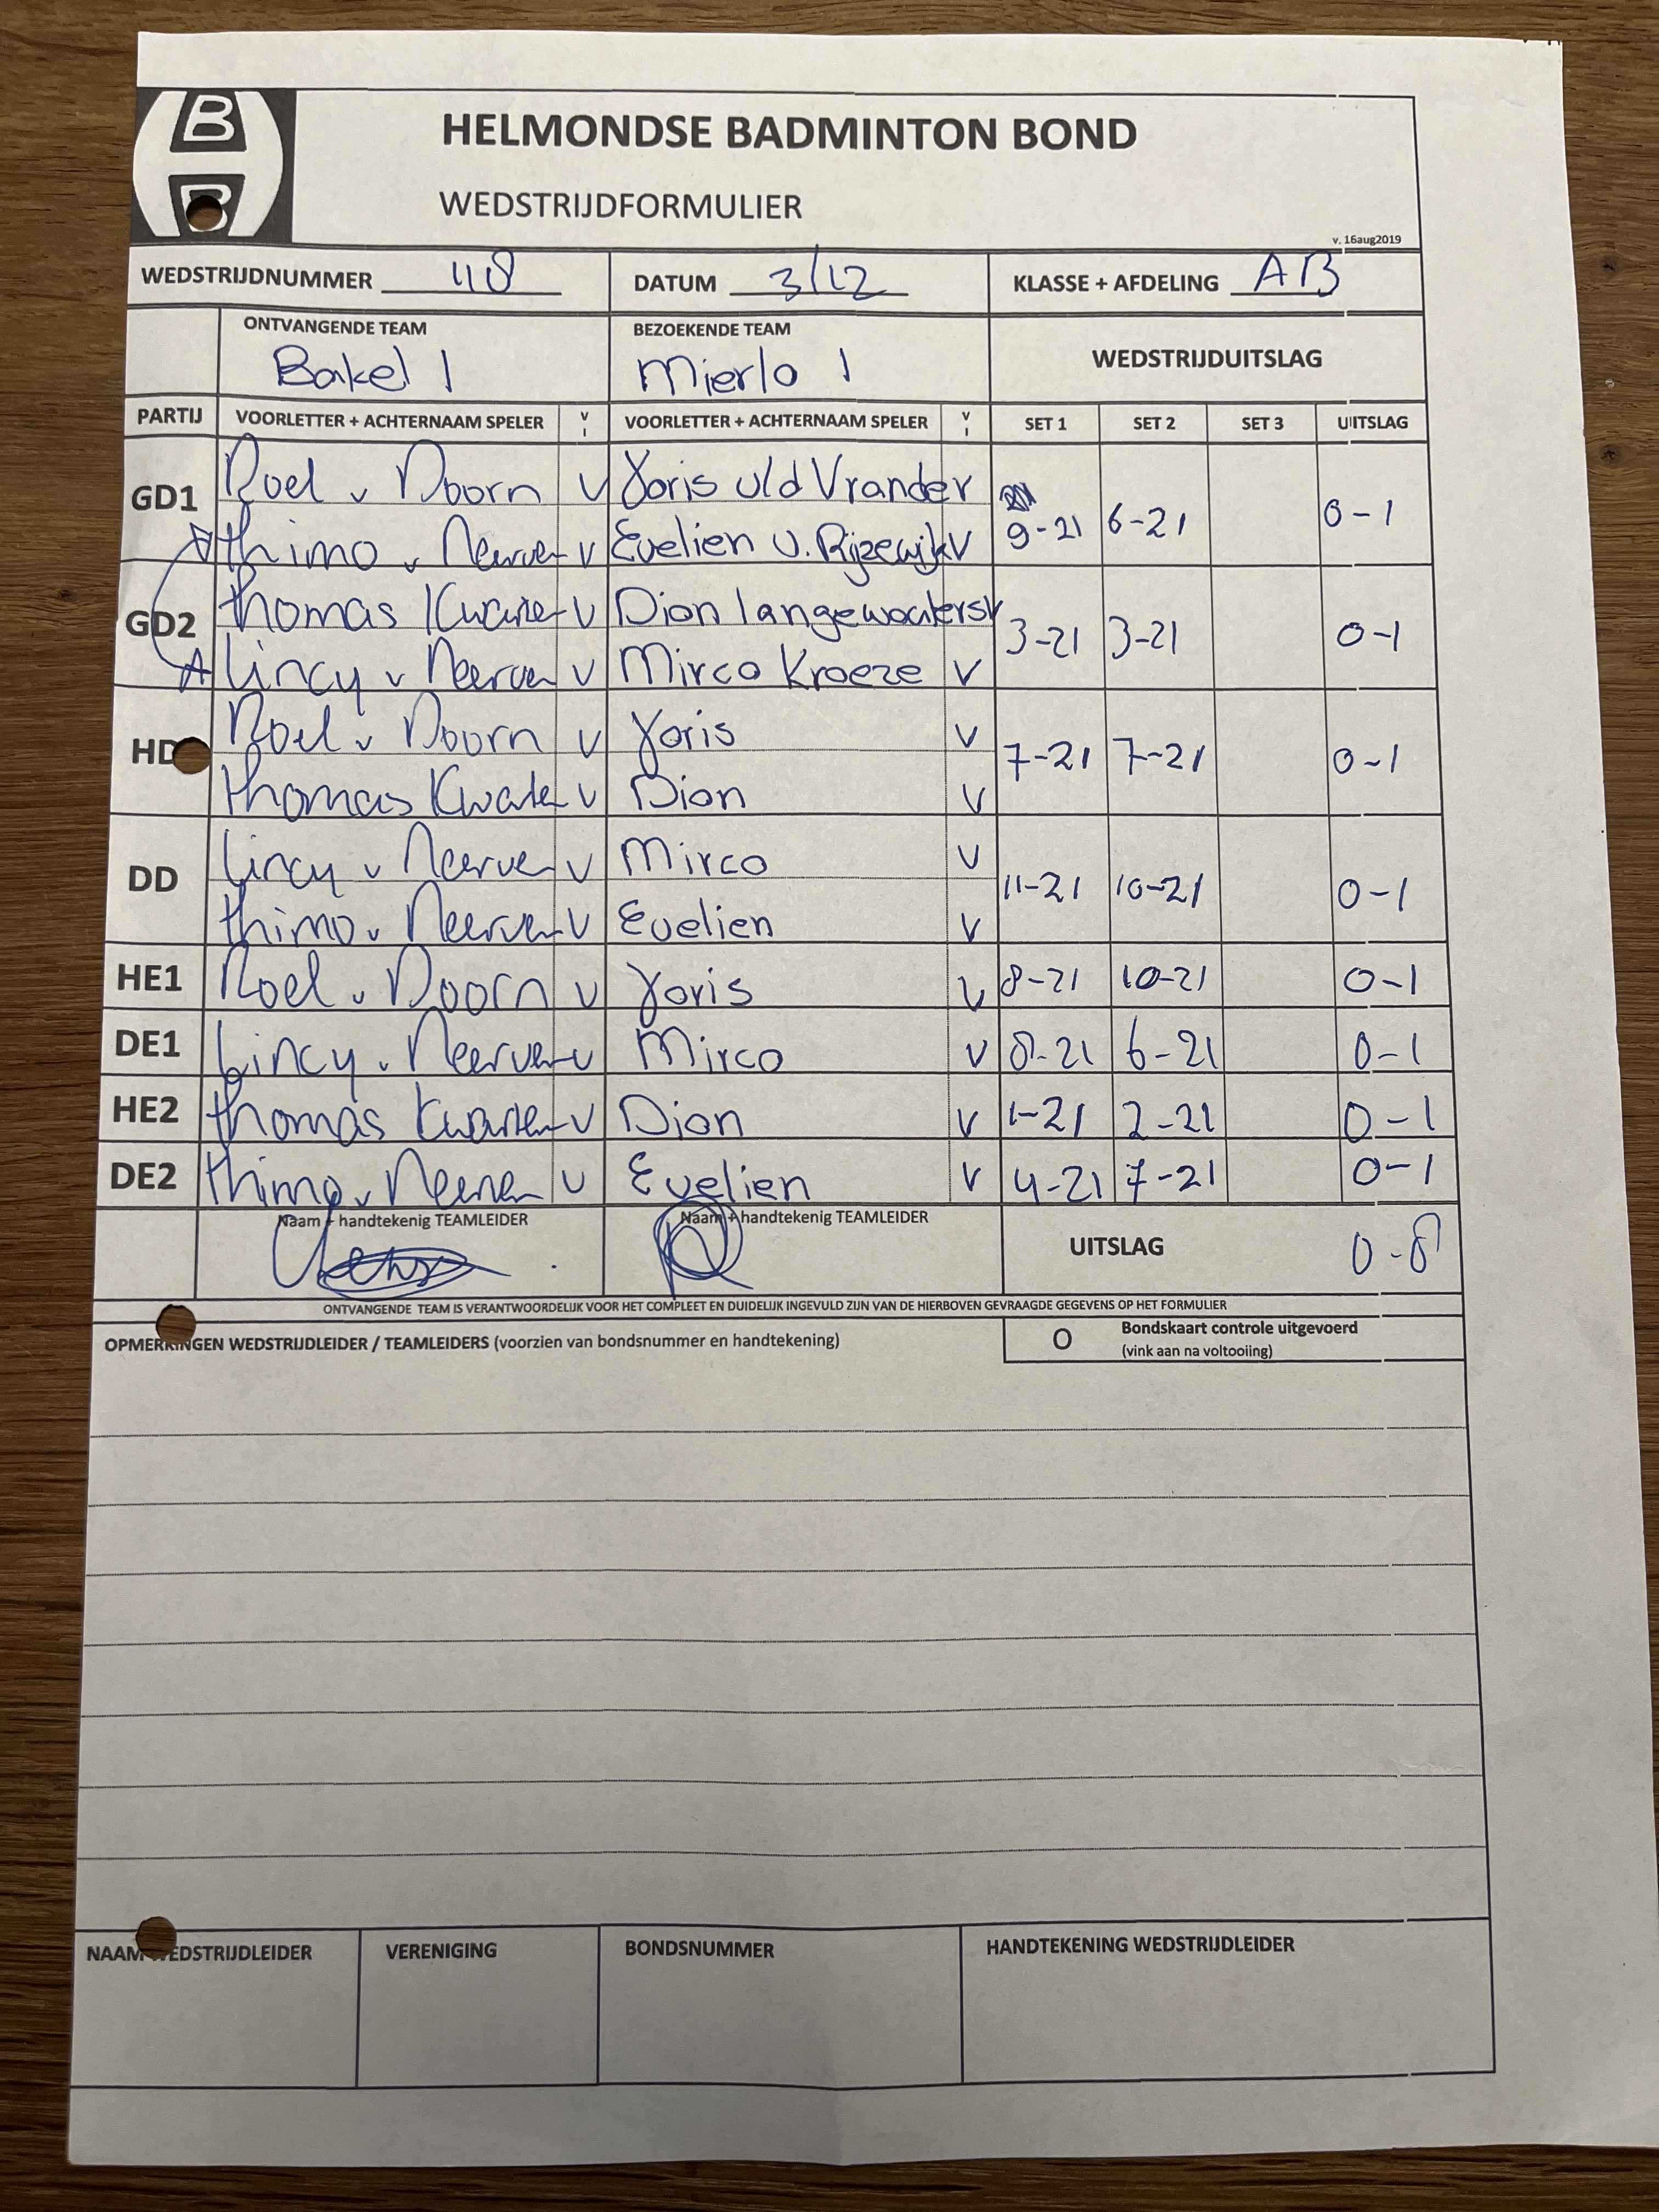 B
B
HELMONDSE BADMINTON BOND
WEDSTRIJDFORMULIER
v. 16aug2019
WEDSTRIJDNUMMER 118 DATUM 3/12 KLASSE + AFDELING AB
ONTVANGENDE TEAM BEZOEKENDE TEAM
Bakel 1 Mierlo 1 WEDSTRIJDUITSLAG
PARTIJ VOORLETTER + ACHTERNAAM SPELER V I VOORLETTER + ACHTERNAAM SPELER V I SET 1 SET 2 SET 3 UITSLAG
GD1 Roel v Doorn V Joris v/d Vrander V 9-21 6-21 0-1
thimo v Neerven V Evelien v. Rijzewijk V
GD2 thomas V Dion langewouters V 3-21 3-21 0-1
Lincy v Neerven V Mirco Kroeze V
HD Roel v Doorn V Joris V 7-21 7-21 0-1
thomas V Dion V
DD Lincy v Neerven V Mirco V 11-21 10-21 0-1
thimo v Neerven V Evelien V
HE1 Roel v Doorn V Joris V 8-21 10-21 0-1
DE1 Lincy v Neerven V Mirco V 8-21 6-21 0-1
HE2 thomas V Dion V 1-21 2-21 0-1
DE2 thimo v Neerven V Evelien V 4-21 7-21 0-1
Naam + handtekenig TEAMLEIDER Naam + handtekenig TEAMLEIDER
UITSLAG 0-8
ONTVANGENDE TEAM IS VERANTWOORDELIJK VOOR HET COMPLEET EN DUIDELIJK INGEVULD ZIJN VAN DE HIERBOVEN GEVRAAGDE GEGEVENS OP HET FORMULIER
OPMERKINGEN WEDSTRIJDLEIDER / TEAMLEIDERS (voorzien van bondsnummer en handtekening) O Bondskaart controle uitgevoerd
(vink aan na voltooiing)
NAAM WEDSTRIJDLEIDER VERENIGING BONDSNUMMER HANDTEKENING WEDSTRIJDLEIDER